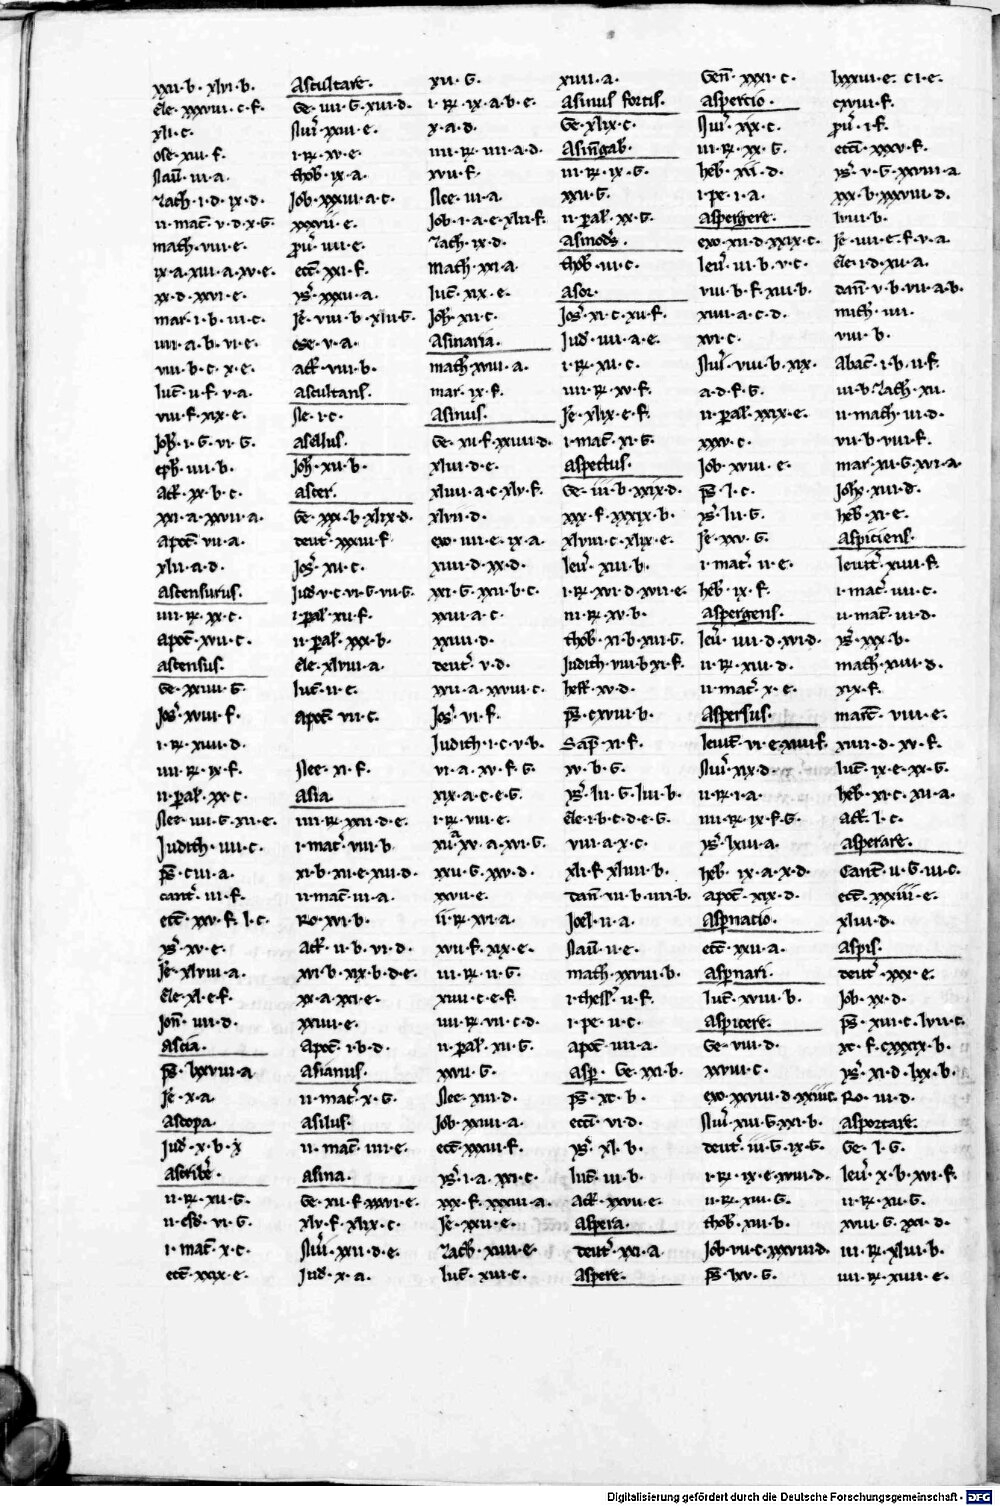 xxii·b· xlvi·b·
Ele· xxxviii·c·f·
xli·c·
ose·xii·f·
Nau᷑·iii·a·
Zach·i·d·ix·d·
ii·mac̃·v·d·x·G
math·viii·e·
ix·a·xiii·a·xv·e·
xx·d·xxvi·e·
mar·i·b·iii·c·
iiii·a·b·vi·e·
viii·b·c·x·e·
luc̃·ii·f·v·a·
viii·f·xix·e·
Joh̃·i·G·vi·G·
eph̃·iiii·b·
Act̃·xx·b·c·
xxi·a·xxvii·a·
apoc̃·vii·a·
xlii·a·d·
Ascensurus·
iiii·R·xx·c·
apoc̃·xvii·c·
ascensus·
Ge·xxiiii·G·
Jos̃·xviii·f·
i·R·xiiii·d·
iiii·R·ix·f·
ii·p̃al·xx·c·
Nee·iiii·G·xii·e·
Judith·iiii·c·
ps̃·ciii·a·
cant̃·iii·f·
ecc̃·xxv·f·l·c·
ys̃·xv·e·
Je·xlviii·a·
Ele·xl·e·f·
Jon̄·iiii·d·
ascia·
ps̃·lxxviii·a
Je·x·a·
Ascopa·
Jud̃·x·b·
ascribe᷑·
ii·R·xii·G·
ii·esd̃·vi·G·
i·mac̃·x·c·
ecc̃·xxix·e·
Ascultare·
Ge·iiii·G·xvii·d·
Nu᷑i·xxiii·e·
i·R·xv·e·
thob̃·ix·a·
Job·xxxiii·a·c·
xxxvii·e·
pu᷑·iiii·e·
ecc̃·xxi·f·
ys̃·xxxii·a·
Je·viii·b·xlii·G·
ose·v·a·
act̃·viii·b·
ascultans·
Ne·i·c·
asellus·
Joh̃·xii·b·
aser·
Ge·xxx·b·xlix·d·
deut̃·xxxiii·f·
Jos̃·xii·c·
Jud̃·v·c·vi·G·vii·G·
i·p̃al·xii·f·
ii·p̃al·xxx·b·
Ele·xlviii·a·
luc̃·ii·e·
apoc̃·vii·c·
Nee·xi·f·
Asia·
iiii·R·xxii·d·e·
i·mac̃·viii·b·
xi·b·xii·e·xiii·d·
ii·mac̃·iii·a·
Ro·xvi·b·
Act̃·ii·b·vi·d·
xvi·b·xix·b·d·e·
xx·a·xxi·e·
xxvii·e·
Apoc̃·i·b·d·
Asianus·
ii·mac̃·x·G·
Asilus·
ii·mac̃·iiii·e·
asina·
Ge·xii·f·xxxvi·e·
xlv·f·xlix·c·
Nu᷑i·xxii·d·e·
Jud̃·x·a·
xii·G·
i·R·ix·a·b·e·
x·a·d·
iiii·R·iiii·a·d·
xvii·f·
Nee·iii·a·
Job·i·a·e·xlii·f·
Zach·ix·d·
math·xxi·a·
luc̃·xix·e·
Joh̃·xii·c·
Asinaria·
math·xviii·a·
mar·ix·f·
Asinus·
Ge·xii·f·xxiiii·d·
xlii·d·e·
xliiii·a·c·xlv·f·
xlvii·d·
exo·iiii·e·ix·a·
xiii·d·xx·d·
xxi·G·xxii·b·c·
xxiii·a·c·
xxxiii·d·
deut̃·v·d·
xxii·a·xxviii·c·
Jos̃·vi·f·
Judith·i·c·v·b·
vi·a·xv·f·G·
xix·a·c·e·G·
i·R·viii·e·
xii·a·xv·a·xvi·G·
xxii·G·xxv·d·
xxvii·e·
ii·R·xvi·a·
xvii·f·xix·e·
iii·R·ii·G·
xiii·c·e·f·
iiii·R·vii·c·d·
ii·p̃al·xii·G·
xxvii·G·
Nee·xiii·d·
Job·xxiiii·a·
ecc̃·xxxiii·f·
ys̃·i·a·xxi·c·
xxx·f·xxxii·a·
Je·xxii·e·
Zach·xiiii·e·
luc̃·xiii·c·
xiiii·a·
Asinus fortis·
Ge·xlix·c·
Asi᷑ngab·
iii·R·ix·G·
xxii·G·
ii·p̃al·xx·G·
Asmode᷑s·
thob̃·iii·c·
asor·
Jos̃·xi·c·xii·f·
Jud̃·iiii·a·e·
i·R·xii·c·
iiii·R·xv·f·
Je·xlix·e·f·
i·mac̃·xi·G·
aspectus·
Ge·iii·b·xxix·d·
xxx·f·xxxix·b·
xlviii·c·xlix·e·
leu᷑·xiii·b·
i·R·xvi·d·xvii·e·
iii·R·xv·b·
thob̃·xi·b·xii·G·
Judith·viii·b·xi·f·
hest̃·xv·d·
ps̃·cxviii·b·
Sap̃·xi·f·
xv·b·G·
ys̃·lii·G·liii·b·
Ele·i·b·c·d·e·G·
viii·a·x·c·
xli·f·xliiii·b·
dan̄·iii·b·iiii·b·
Joel·ii·a·
Nau᷑·ii·e·
math·xxviii·b·
i·thess̃·ii·f·
i·pe·ii·c·
apoc̃·iiii·a·
asp̃· Ge·xxi·b·
ps̃·xc·b·
ecc̃i·vi·d·
ys̃·xl·b·
luc̃·iii·b·
Act̃·xxvii·e·
Aspera·
deut̃·xxi·a
Aspere·
Gen̄·xxxi·c·
aspertio·
Nu᷑i·xix·c·
iii·R·xx·G·
heb̃·xii·d·
i·pe·i·a·
aspergere·
exo·xii·d·xxix·c·
leu᷑·iii·b·v·c·
viii·b·f·xiii·b·
xiiii·a·c·d·
xvi·c·
Nu᷑i·viii·b·xix·
a·d·f·G·
ii·p̃al·xxix·e·
xxxv·c·
Job·xviii·e·
ps̃·l·c·
ys̃·lii·G·
Je·xxv·G·
i·mac̃·ii·e·
heb̃·ix·f·
aspergens·
leu᷑·iiii·d·xvi·d·
ii·R·xiii·d·
ii·mac̃·x·e·
Aspersus·
leuit̃·vi·e·xiiii·f·
Nu᷑i·xix·d·
ii·R·i·a·
iiii·R·ix·f·G·
ys̃·lxiii·a·
heb̃·ix·a·x·d·
apoc̃·xix·d·
Asp̃natio·
ecc̃·xxii·a·
asp̃nari·
luc̃·xviii·b·
Aspicere·
Ge·viii·d·
xxviii·c·
exo·xxviii·d·xxxiiii·c·
Nu᷑i·xiii·G·xxi·b·
deut̃·iii·G·ix·G·
i·R·ix·e·xviii·d·
ii·R·xiii·G·
thob̃·xii·b·
Job·vii·c·xxxviii·d·
ps̃·lxv·G·
lxxxii·e· ci·e·
cxviii·f·
pu᷑·i·f·
ecc̃i·xxxv·f·
ys̃·v·G·xxviii·a
xxx·b·xxxviii·d·
lviii·b·
Je·iiii·e·f·v·a·
Ele·i·d·xii·a·
dan̄·v·b·vii·a·b·
mich̃·iiii·
viii·b·
Abac̃·i·b·ii·f·
iii·b·Zach·xii·
ii·mach·iii·d·
vii·b·viii·f·
mar·xii·G·xvi·a·
Joh̃·xvii·d·
heb̃·xi·e·
Aspiciens·
leuit̃·xiiii·f·
i·mac̃·iiii·c·
ii·mac̃·iii·d·
ys̃·xxx·b·
math·xiiii·d·
xix·f·
marc̃·viii·e·
xiiii·d·xv·f·
luc̃·ix·e·xx·G·
heb̃·xi·c·xii·a·
Act̃·i·c·
asperare·
Cant̃·ii·G·iii·c·
ecc̃·xxxiii·e·
xliii·d·
Aspis·
deut̃·xxx·e·
Job·xx·d·
ps̃·xiii·c·lvii·c·
xc·f·cxxxix·b·
ys̃·xi·d·lix·b·
Ro·iii·d·
Asportare·
Ge·l·G·
leu᷑·x·b·xvi·f·
ii·R·xii·G·
xviii·G·xxi·d·
iii·R·xliii·b·
iiii·R·xiiii·e·
Digitalisierung gefördert durch die Deutsche Forschungsgemeinschaft - DFG